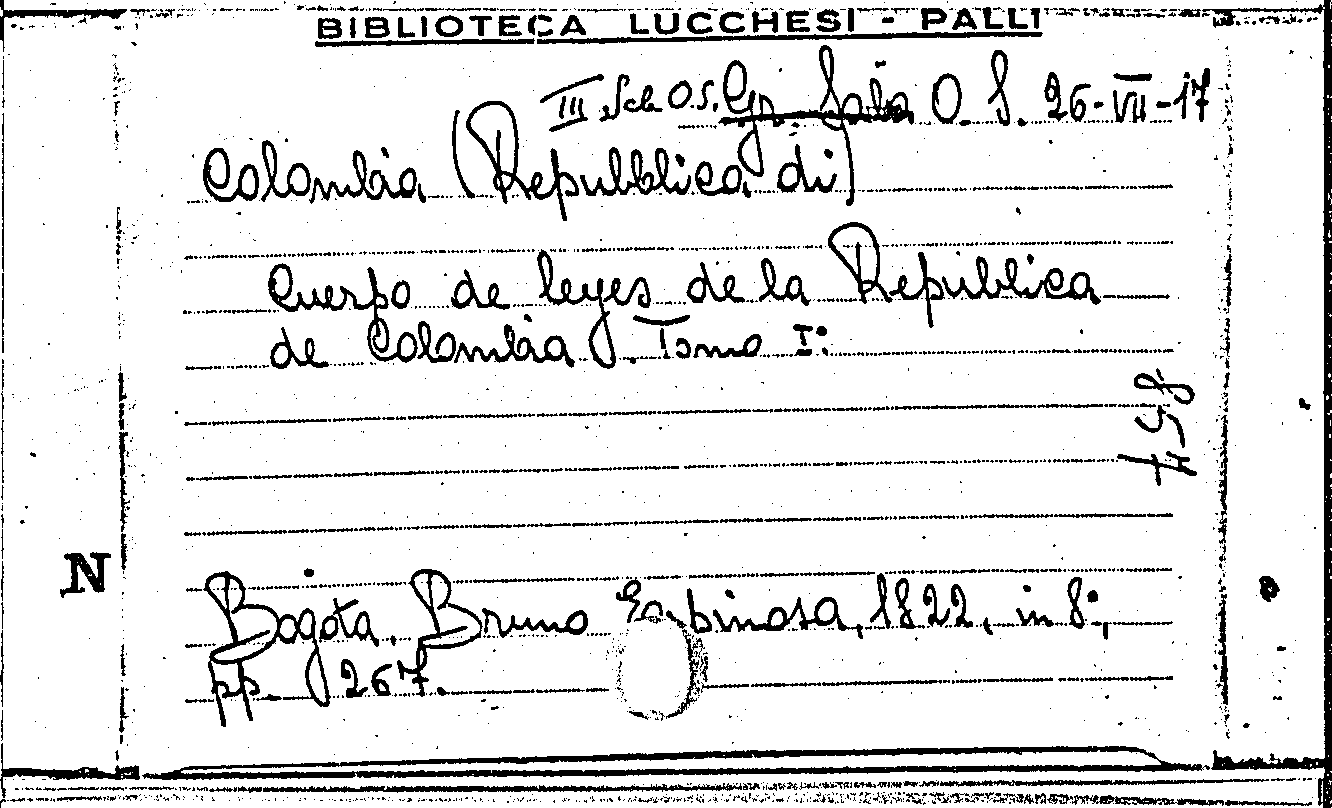 BIBLIOTECA LUCCHESI - PALLI
III Sch. O.S. Gr. Sala O. S. 26-VII-17
Colombia (Repubblica di)
Cuerpo de leyes de la República
de Colombia. Tomo I°.
458
N
Bogota, Bruno Espinosa, 1822, in 8°,
pp. 267.